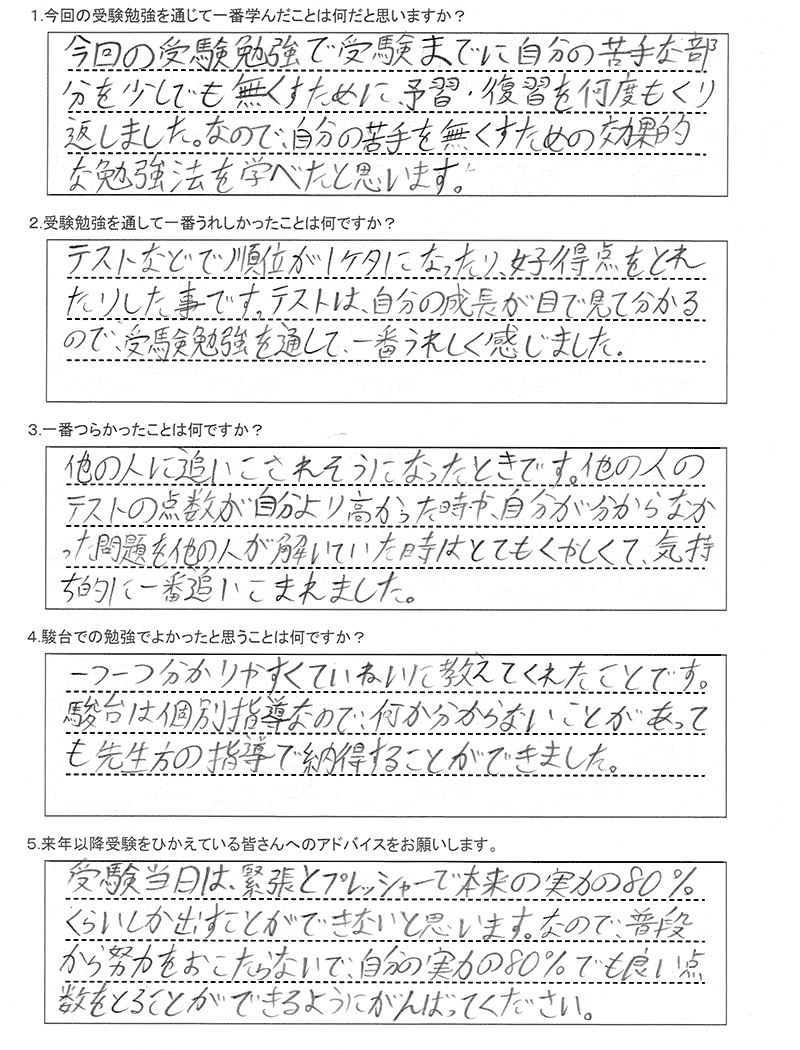 1.今回の受験勉強を通じて一番学んだことは何だと思いますか？
今回の受験勉強で受験までに自分の苦手な部
分を少しでも無くすために、予習・復習を何度もくり
返しました。なので、自分の苦手を無くすための効果的
な勉強法を学べたと思います。
2.受験勉強を通して一番うれしかったことは何ですか？
テストなどで順位が1ケタになったり、好得点をとれ
たりした事です。テストは、自分の成長が目で見て分かる
ので、受験勉強を通して、一番うれしく感じました。
3.一番つらかったことは何ですか？
他の人に追いこされそうになったときです。他の人の
テストの点数が自分より高かった時や、自分が分からなか
った問題を他の人が解いていた時はとてもくやしくて、気持
ち的に一番追いこまれました。
4.駿台での勉強でよかったと思うことは何ですか？
一つ一つ分かりやすくていねいに教えてくれたことです。
駿台は個別指導なので、何か分からないことがあって
も先生方の指導で納得することができました。
5.来年以降受験をひかえている皆さんへのアドバイスをお願いします。
受験当日は、緊張とプレッシャーで本来の実力の80%
くらいしか出すことができないと思います。なので、普段
から努力をおこたらないで、自分の実力の80%でも良い点
数をとることができるようにがんばってください。